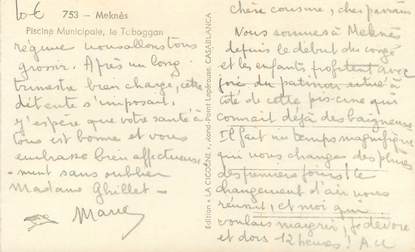 10€
753 - Meknès
Piscine Municipale, le Toboggan
chère cousine, cher parrain
Nous sommes à Meknès
depuis le début du congé
et les enfants profitent avec
joie du patinoir situé à
côté de cette piscine qui
connait déjà des baigneurs
Il fait un temps magnifique
qui nous change des pluies
des premiers jours! le
changement d'air nous
réussit, et moi qui
voulais maigrir, je dévore
et dors 12 heures! A ce
régime nous allons tous
grossir. Après un long
trimestre bien chargé, cette
détente s'imposait.
J'espère que votre santé à
tous est bonne et vous
embrasse bien affectueuse-
ment sans oublier
Madame Ghillet -
Edition "LA CIGOGNE", Rond-Point CASABLANCA